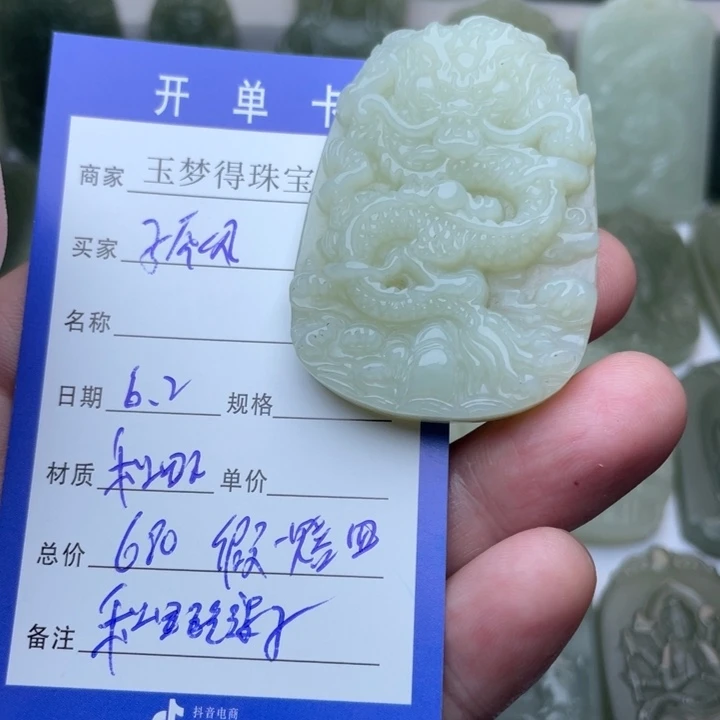 开单卡
商家 玉梦得珠宝
买家
名称
日期 6.2 规格
材质 和田玉 单价
总价 680 假一赔四
备注
抖音电商